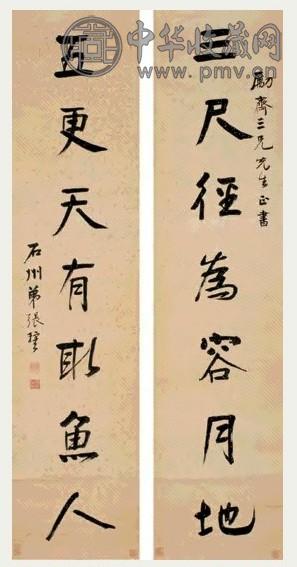 中华收藏网
www.pmv.cn
三尺徑為容月地
齋三兄先生正書
五更天有取魚人
石州弟張穆